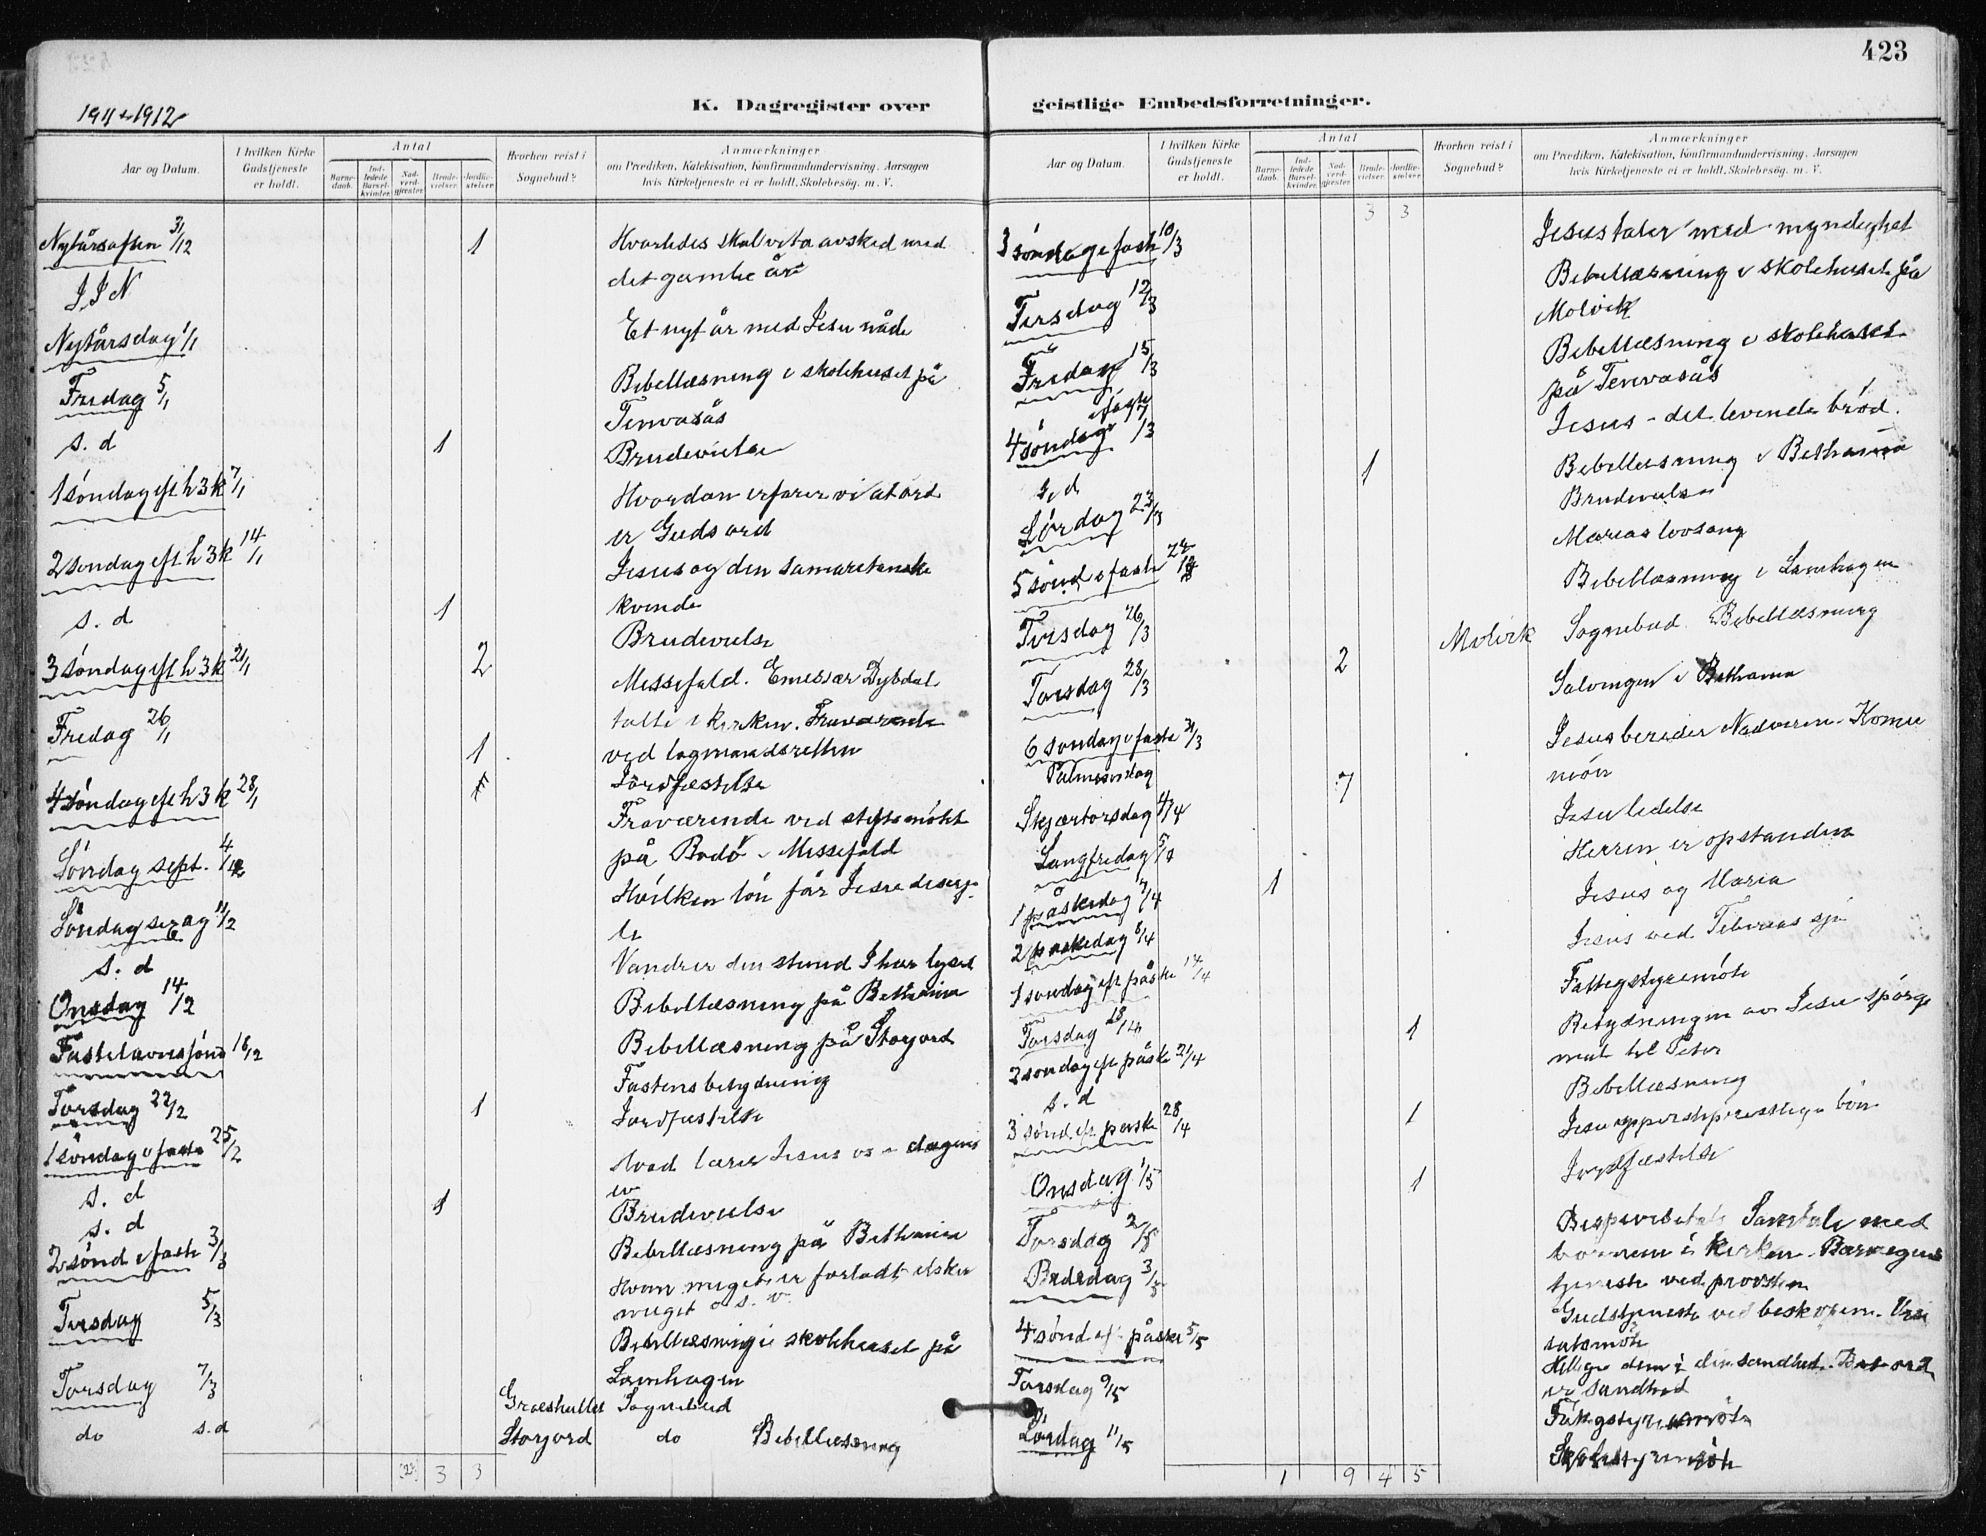 423
1911-1912
K. Dagregister over geistlige Embedsforretninger.
Aar og Datum.
I hvilken Kirke Gudstjeneste er holdt.
Antal
Barne-daab.
Ind-ledede Barsel-kvinder.
Nad-verd-gjester.
Brude-vielser.
Jordfæ-stelser.
Hvorhen reist i Sognebud?
Anmærkninger
om Prædiken, Katekisation, Konfirmandundervisning. Aarsagen
hvis Kirketjeneste ei er holdt, Skolebesøg. m. V.
Nytårsaften 31/12 1 Hvorledes skal vi ta avsked med
det gamle år
I J N
Nytårsdag 1/1 Et nyt år med Jesu nåde
Fredag 5/1 Bibellæsning i skolehuset på
Tenvasås
s. d 1 Brudevielse
1 søndag eft h 3 k 7/1 Hvordan erfarer vi at ord
er Guds ord
2 søndag eft h 3 k 14/1 Jesus og den samaritanske
kvinde
s. d 1 Brudevielse
3 søndag eft h 3 k 21/1 2 Messefald. Emissær Dybdal
talte i kirken. Fraværende
Fredag 26/1 ved lagmandsretten
1 Jordfæstelse
4 søndag eft h 3 k 28/1 Fraværende ved stiftsmötet
på Bodö. Messefald
Söndag sept. 4/2 Hvilken lön får Jesu discip-
le
Söndag sexag 11/2 Vandrer den stund I har lyset
s. d Bibellæsning på Bethania
Onsdag 14/2 Bibellæsning på Storjord
Fastelavnssønd 18/2 Fastens betydning
Torsdag 22/2 1 Jordfæstelse
1 søndag i faste 25/2 Hvad lærer Jesus os
s. d 1 Brudevielse
s. d Bibellæsning på Bethania
2 sønd i faste 3/3 Hvem meget er forladt elsker
meget o. s. v.
Tirsdag 5/3 Bibellæsning i skolehuset på
Lamhagen
Torsdag 7/3 Graeshullet Sognebud
do s. d Storjord do Bibellæsning
3 3
Aar og Datum.
I hvilken Kirke Gudstjeneste er holdt.
Antal
Barne-daab.
Ind-ledede Barsel-kvinder.
Nad-verd-gjester.
Brude-vielser.
Jordfæ-stelser.
Hvorhen reist i Sognebud?
Anmærkninger
om Prædiken, Katekisation, Konfirmandundervisning. Aarsagen
hvis Kirketjeneste ei er holdt, Skolebesøg. m. V.
3 3
3 søndag i faste 10/3 Jesus taler med myndighet
Tirsdag 12/3 Bibellæsning i skolehuset på
Molvik
Fredag 15/3 Bibellæsning i skolehuset
på Tenvasås
4 søndag i faste 17/3 Jesus - det levende bröd.
Bibellæsning i Bethania
s. d 1 Brudevielse
Lørdag 23/3
5 sønd i faste 24/3 Marias lovsang
Tirsdag 26/3 Bibellæsning i Lamhagen
Torsdag 28/3 2 Molvik Sognebud. Bibellæsning
6 søndag i faste 31/3 Salvingen i Bethania
Palmesøndag
Skjærtorsdag 4/4 7 Jesus bereder Nadveren. Komu
nion
Langfredag 5/4 Jesu lidelse
1 påskedag 7/4 1 Herren er opstanden
2 påskedag 8/4 Jesus og Maria
1 søndag eft påske 14/4 Jesus ved Tiberias sjö
Torsdag 18/4 Fattigstyremöte
2 søndag eft påske 21/4 1 Betydningen av Jesu spörgs
maal til Peter
s. d Bibellæsning
3 sønd. eft påske 28/4 1 Jesu ypperstepresstlige bön
Onsdag 1/5 1 Jordfæstelse
Torsdag 2/5 Bispevisitats Samtale med
børnene i kirken.
Bededag 3/5 tjeneste ved provsten
Gudstjeneste ved biskopen.
4 sønd eft påske 5/5 Hellige dem i din sandhed. Dit ord
er sandhed
Torsdag 9/5 Fattigstyremöte
Lördag 11/5 Skolestyremöte
1 9 4 5